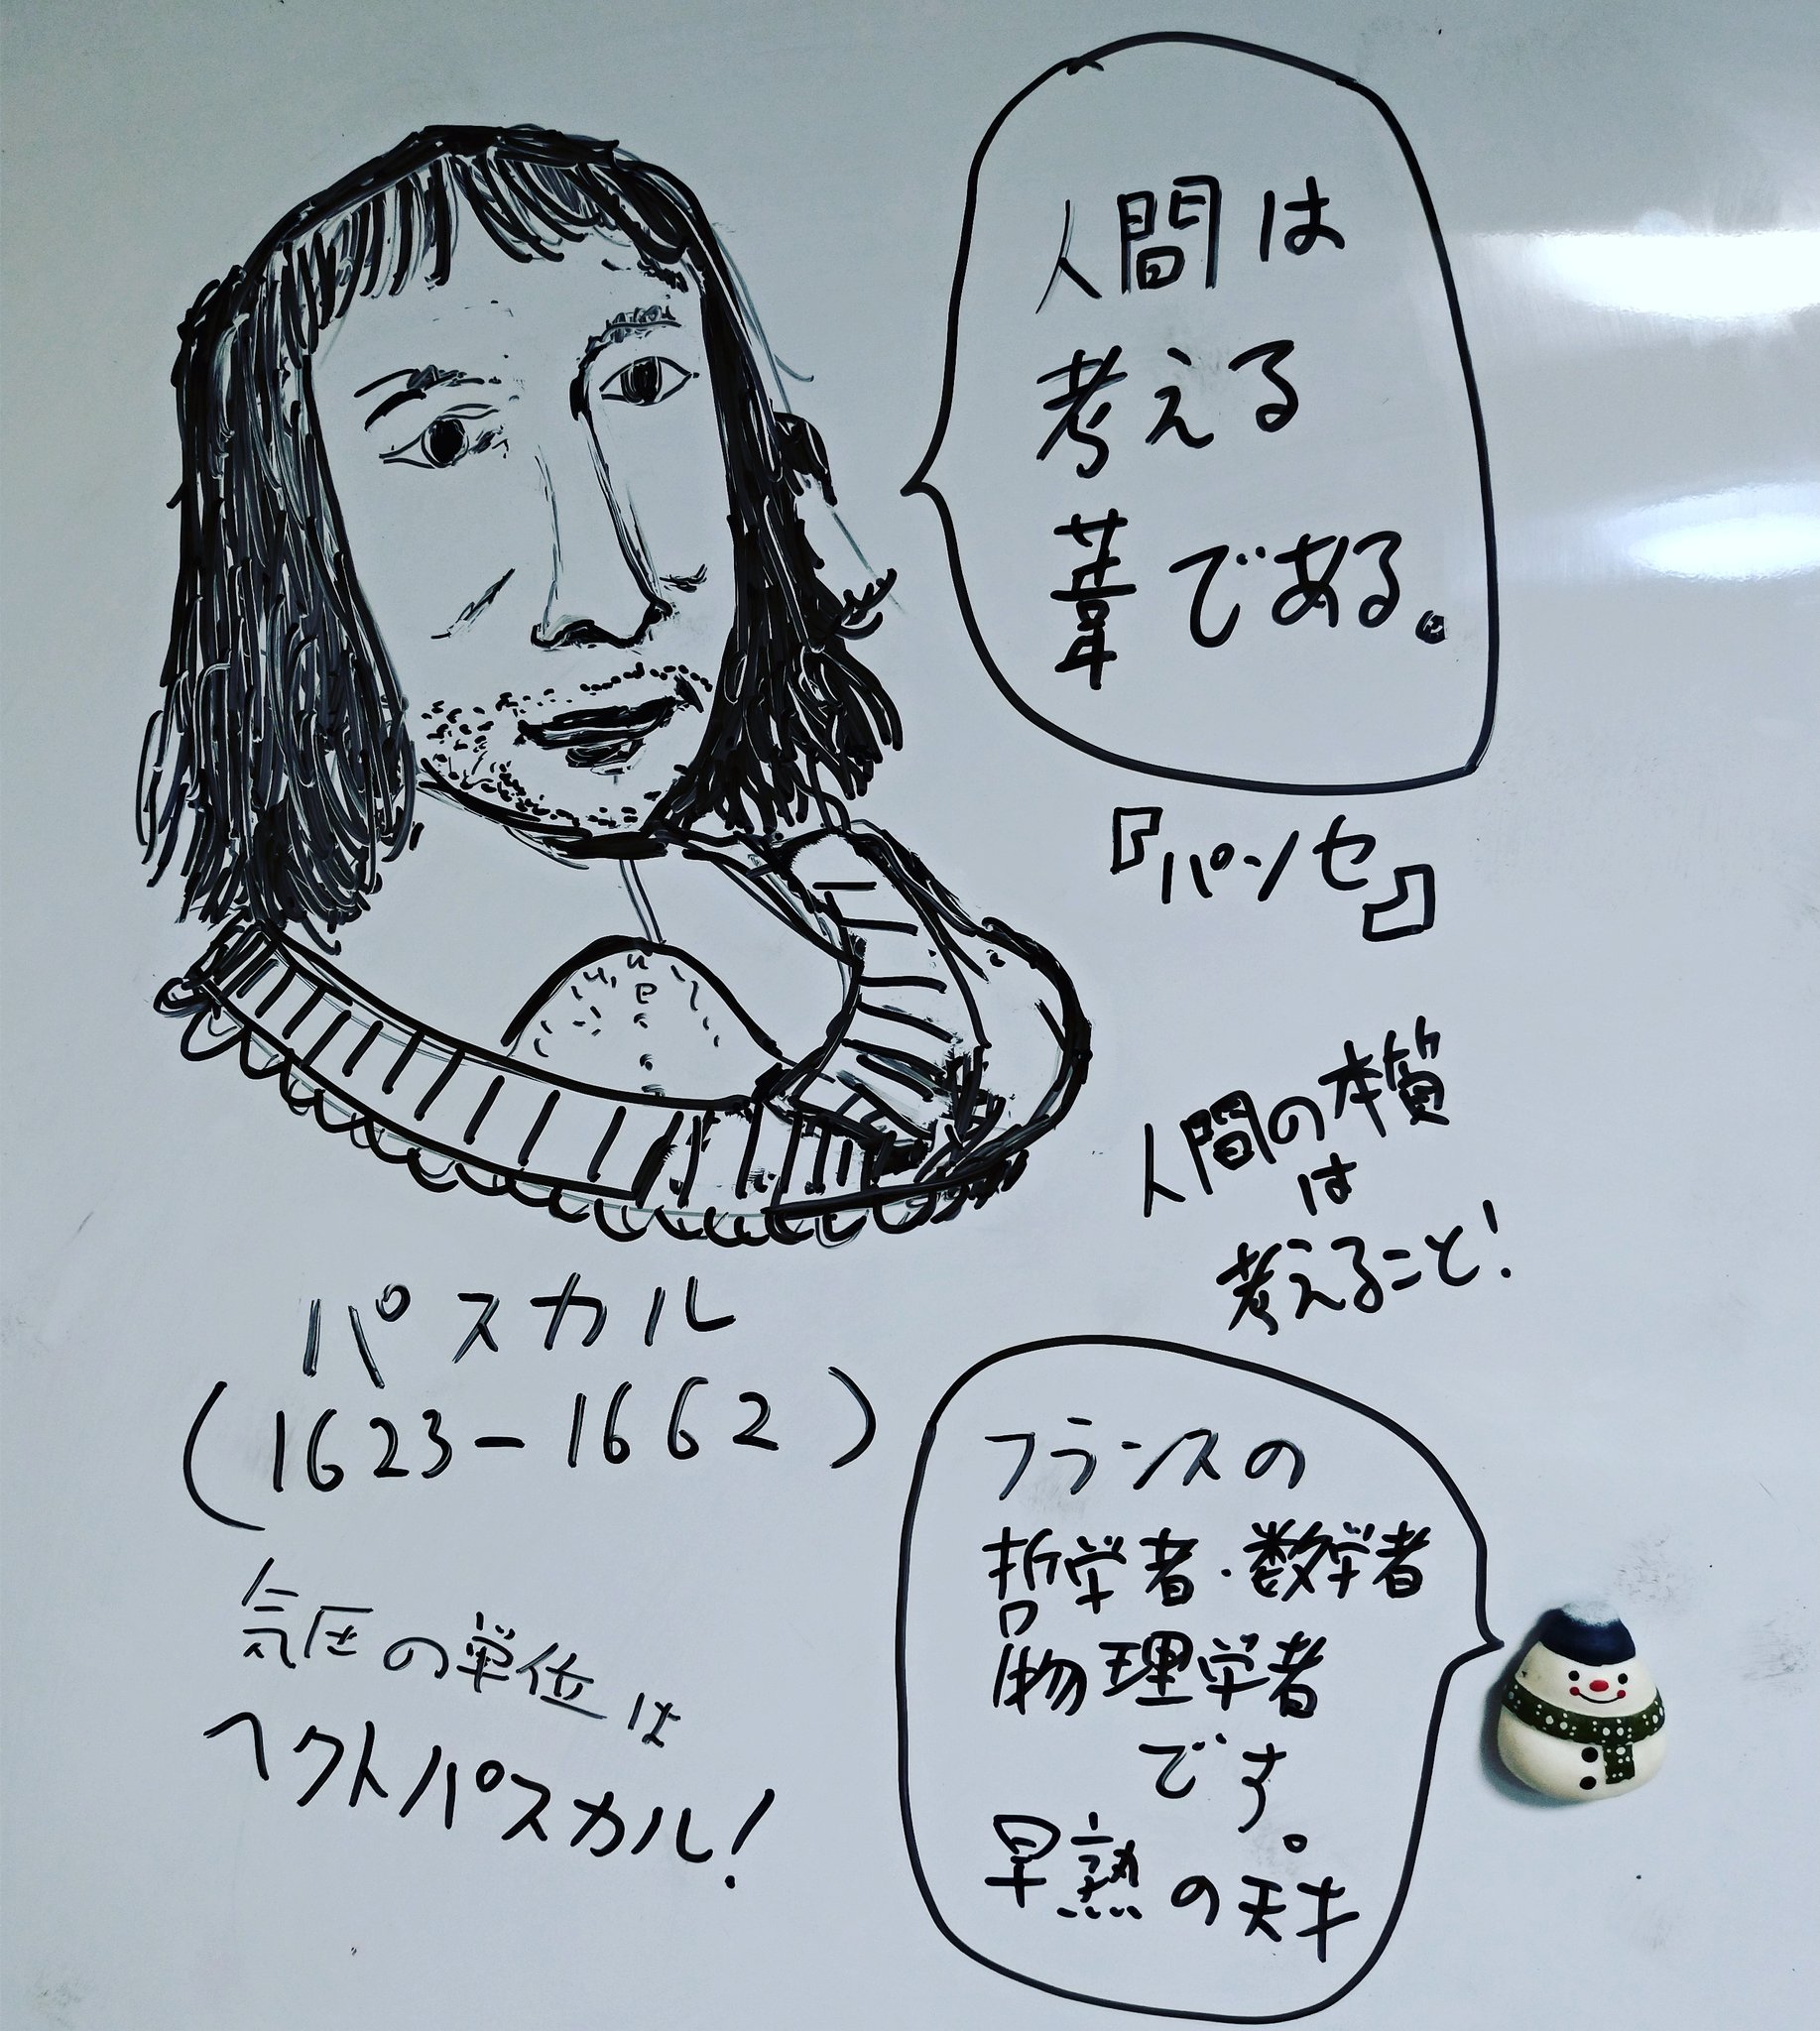 人間は
考える
葦である。
『パンセ』
人間の本質
は
考えること!
パスカル
(1623-1662)
気圧の単位は
ヘクトパスカル!
フランスの
哲学者・数学者
物理学者
です。
早熟の天才